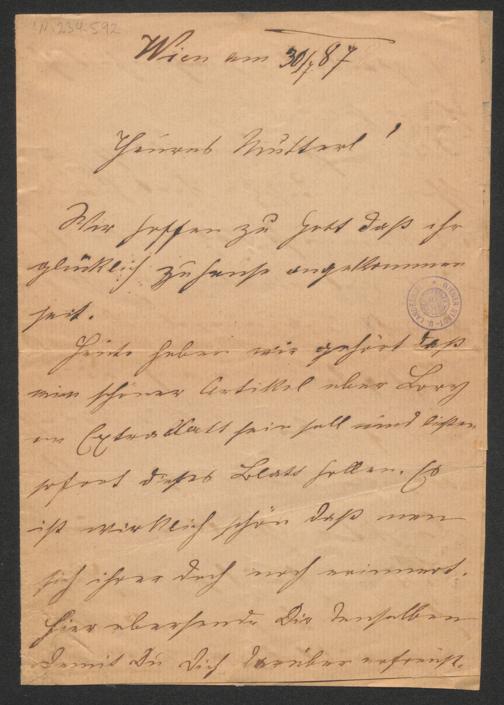 IN. 234.592
Wien am 30/7 87
Theures Mutterl!
Wir hoffen zu Gott daß ihr
glücklich zu hause angekommen
seit.
Heute haben wir gehört daß
ein schöner Artikel über Lory
im Extrablatt sein soll und ließen
sofort dieses Blatt hollen. Es
ist wirklich schön daß man
sich ihrer doch noch erinnert.
Hier übersende Dir denselben
damit Du Dich darüber erfreust.